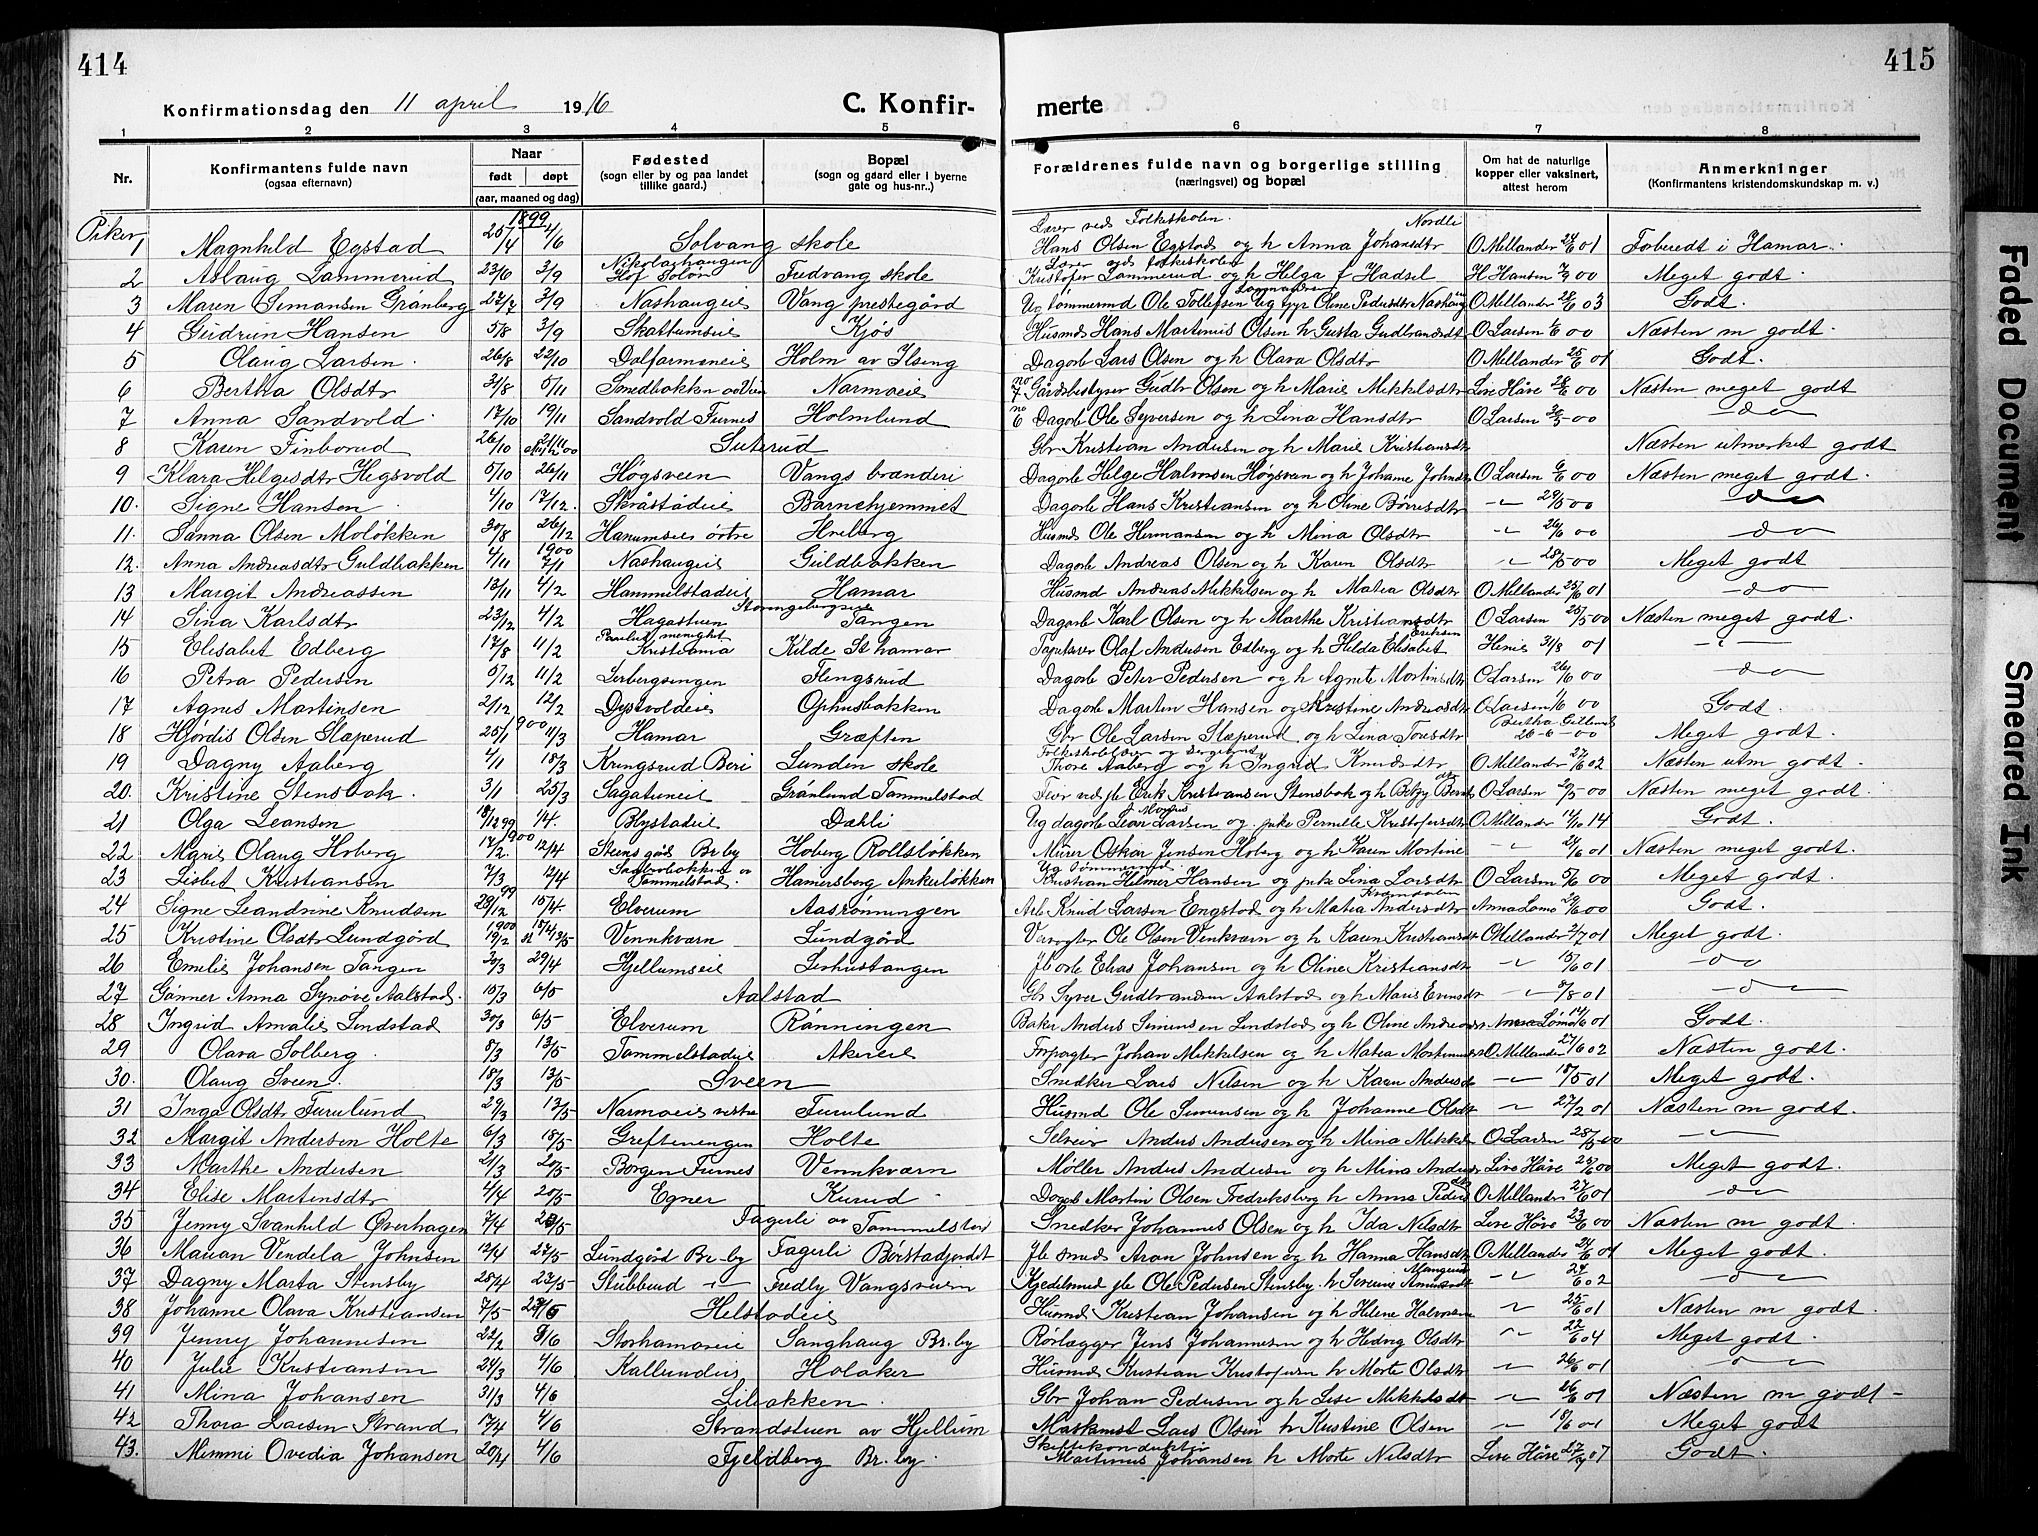 414
415
Konfirmationsdag den 11 april 1916
C. Konfir-
merte
1 2 3 4 5 6 7 8
Nr.
Konfirmantens fulde navn
(ogsaa efternavn)
Naar
født døpt
(aar, maaned og dag)
Fødested
(sogn eller by og paa landet
tillike gaard.)
Bopæl
(sogn og gaard eller i byerne
gate og hus-nr..)
Forældrenes fulde navn og borgerlige stilling
(næringsvei) og bopæl
Om hat de naturlige
kopper eller vaksinert,
attest herom
Anmerkninger
(Konfirmantens kristendomskundskap m. v.)
Piker
1899
Lærer ved Folkeskolen. Nordli
1 Magnhild Egstad 25/4 4/6 Solvang skole Hans Olsen Egstad og h Anna Johansdtr O Millander 24/6 01 Forberedt i Hamar.
2 Aslaug Lammerud 23/6 3/9 Hof Solør Fredvang skole Kristofer Lammerud og h Helga f Hadsel H Hansen 7/9 00 Meget godt.
3 Maren Simonsen Grønberg 27/7 3/9 Nashaugeie Vang prestegård Ug tømmermd Ole Tollefsen Ug pyr Oline Pedersdtr O Millander 28/6 03 Godt.
4 Gudrun Hansen 5/8 3/9 Skattumseie Kjøs Husmd Hans Martinius Olsen h Gusta Gudbrandsdtr O Larsen 1/6 00 Næsten m godt.
5 Olaug Larsen. 26/8 22/10 Dalfarmeneie Holm av Ilseng Dagarb Lars Olsen og h Olava Olsdtr O Millander 25/6 01 Godt.
6 Bertha Olsdtr 31/8 5/11 Smedbakken Narmoeie no 7 Gårdsbestyrer Gudbr Olsen og h Marie Mikkelsdtr Live Håve 28/6 00 Næsten meget godt
7 Anna Sandvold 17/10 19/11 Sandvold Furnes Holmlund no 6 Dagarb Ole Syversen og h Lina Hansdtr O Larsen 00 —do—
8 Karen Finborud 26/10 Suterud Gbr Kristian Andersen og h Marie Kristiansdtr Næsten utmerket godt
9 Klara Helgesdtr Hegsvold 5/10 26/11 Høgsveen Vangs brænderi Dagarb Helge Halvorsen Høgsveen og h Johanne Johnsdtr O Larsen 6/6 00 Næsten meget godt.
10. Signe Hansen 4/10 17/12. Skråstadeie Barnehjemmet Dagarb Hans Kristiansen og h Oline Børresdtr —"— 29/5 00 —do—
11. Sanna Olsen Moløkken 30/8 26/12 Hanumseie østre Hveberg Husmd Ole Hermansen og h Mina Olsdtr —"— 26/6 00 —do—
1900
12. Anna Andreasdtr Guldbakken 4/11 7/1 Nashaugeie Guldbakken Dagarb Andreas Olsen og h Karen Olsdtr —"— 28/5-00 Meget godt
13 Margit Andreassen 13/11 4/2 Hammelstadeie Hamar Husmd Andreas Mikkelsen og h Matea Olsdtr O Millander 25/6 01 —do—
14 Sina Karlsdtr 23/12 4/2 Hagastuen Tangen Dagarb Karl Olsen og h Marthe Kristiansdtr O Larsen 25/5 00 Næsten meget godt.
15 Elisabet Edberg 17/8 11/2 Kristiania Kilde St hamar Tapetserer Olaf Andersen Edberg og h Hilda Elisabet Eriksen Henie 31/8 01 —"—
16 Petra Pedersen 5/12 11/2 Lerbergsengen Flengsrud Dagarb Peter Pedersen og h Agnete Martinsdtr O Larsen 26/6 00 —do—
17 Agnes Martinsen 2/12 12/2 Dystvoldeie Ophusbakken Dagarb Marten Hansen og Kristine Andreasdtr O Larsen 1/6 00 Godt.
1900
18 Hjørdis Olsen Slæperud 25/1 11/3 Hamar Græften Gbr Ole Larsen Slæperud og h Lina Toresdtr 26-6-00 Meget godt.
19 Dagny Aaberg 4/1 18/3 Kringsrud Beri Lunden skole Thore Aaberg og h Ingrid Knudsdtr O Millander 27/6 02 Næsten utm godt.
20. Kristine Stensbak. 3/1 25/3 Sagatuneie Grønlund Tommelstad Erik Kristiansen Stensbak og h Betzy O Larsen 29/5 00 Næsten meget godt.
21 Olga Leansen 18/12 99 1/4. Blystadeie Dæhli Ug dagarb Lean Larsen og pike Pernille Kristofersdtr O Millander 14/10 14 Godt.
1900
22 Marie Olaug Hoberg 17/2. 12/4 Steens gås Br.by Hoberg Rollsløkken Murer Oskar Jensen Hoberg og h Karen Martine —"— 24/6 01 Næsten meget godt.
23 Lisbet Kristiansen 7/3 12/4 Tommelstad. Hamersborg Ankerløkken Kristian Helmer Hansen og pike Lina Larsdtr O Larsen 5/6 00 Meget godt.
24 Signe Leandrine Knudsen 28/12 99 15/4. Elverum Aasrønningen Arb Knud Larsen Engstad og h Matea Andersdtr Anna Lomo 29/6 00 Godt.
25 Kristine Olsdtr Lundgård 19/2 Vennkværn Lundgård Ole Olsen Venkværn og h Karen Kristiansdtr O Millander 2/7 01 Meget godt.
26 Emelie Johansen Tangen 20/3 29/4 Hjellumseie Lerhustangen Elias Johansen og h Oline Kristiansdtr —"— 15/6 01 —do—
27 Gunner Anna Synøve Aalstad. 15/3 6/5 Aalstad Gbr Syver Gudbrandsen Aalstad og h Maris Evensdtr —"— 8/8 01 —do—
28 Ingrid Amalie Lindstad 30/3 6/5 Elverum Rønningen Baker Anders Simensen Lindstad og h Oline Andreasdtr Anna Lømo 01 Godt.
29 Olava Solberg. 8/3 13/5 Tommelstadeie Akereie Forpagter Johan Mikkelsen og h Matea O Millander 27/6 02 Næsten godt.
30. Olaug Sveen. 18/3 13/5 Sveen Snedker Lars Nilsen og h Karen Andersdtr —"— 18/5 01 Meget godt.
31 Inga Olsdtr Furulund 29/3 13/5 Narmoeie vestre Furulund Husmd Ole Simensen og h Johanne Olsdtr —"— 27/2 01 Næsten m godt.
32 Margit Andersen Holte 6/3 18/5 Greftenengen Holte Selveier Anders Andersen og h Mina Mikkels O Larsen 28/5 00 —"—
33 Marthe Andersen 21/3 20/5 Borgen Furnes Vennkværn Møller Anders Andersen og h Mina Anders Live Håve 25/6 00 Meget godt.
34 Elise Martinsdtr 4/4 20/5 Egner Kurud Dagarb Martin Olsen Fredriksberg h Anna Peders O Millander 27/6 01 —do—
35 Jenny Svanhild Øverhagen 7/4 Fagerli av Tommelstad Snedker Johannes Olsen og h Ida Nilsdtr Live Håve 23/6 00 Næsten m godt.
36 Marian Vendela Johnsen 12/4 27/5 Lundgård Br-by Fagerli Børstadjordet smed Aron Johnsen og h Hanna Hansdtr O Millander 24/6 01 Meget godt.
37 Dagny Marta Stensby 25/4 23/5 Stubberud —"— Fredly Vangsveien Kjedelsmed Ole Pedersen Stensby. h Severine —"— 27/6 02 —do—
38 Johanne Olava Kristiansen 7/5 Helstadeie Husmd Kristian Johansen og h Helene Halvorsen —"— 25/6 01 Næsten m godt.
39 Jenny Johannesen 22/2 8/6 Storhamareie Sanghaug Br.by Rørlægger Jens Johannesen og h Hedvig Olsdtr —"— 22/6 04 Meget godt.
40 Julie Kristiansen 24/3 4/6 Kallerudeie Holaker Husmd Kristian Kristofersen h Marte Olsdtr —"— 26/6 01 —do—
41 Mina Johansen 31/3 4/6 Lilbakken. Gbr Johan Pedersen og h Lise Mikkelsdtr —"— 26/6 01 Næsten m godt —
42 Thora Larsen Strand 17/4 4/6 Strandstuen av Hjellum Maskinist Lars Olsen h Kristine Olsen —"— 18/6 01 Meget godt
43. Mimmi Ovedia Johansen 20/4 4/6 Fjeldberg Br.by. Martinus Johansen h Marte Nilsdtr Live Håve 07 Godt.
Faded Document
Smeared Ink